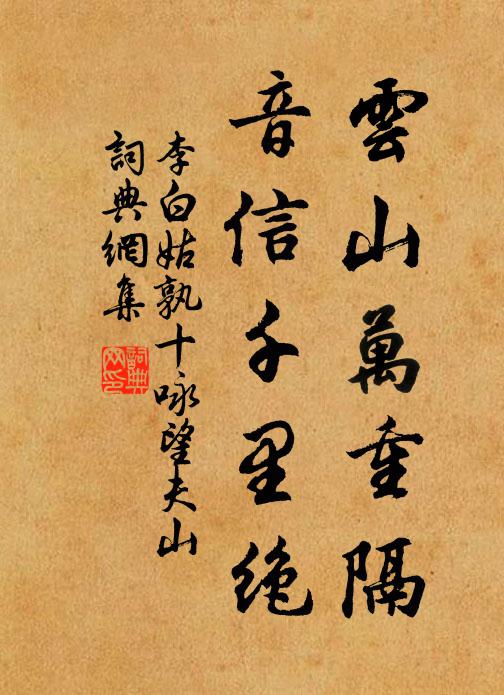 雲山萬重隔
音信千里絶
李白姑孰十咏望夫山
詞典網集
詞典網印